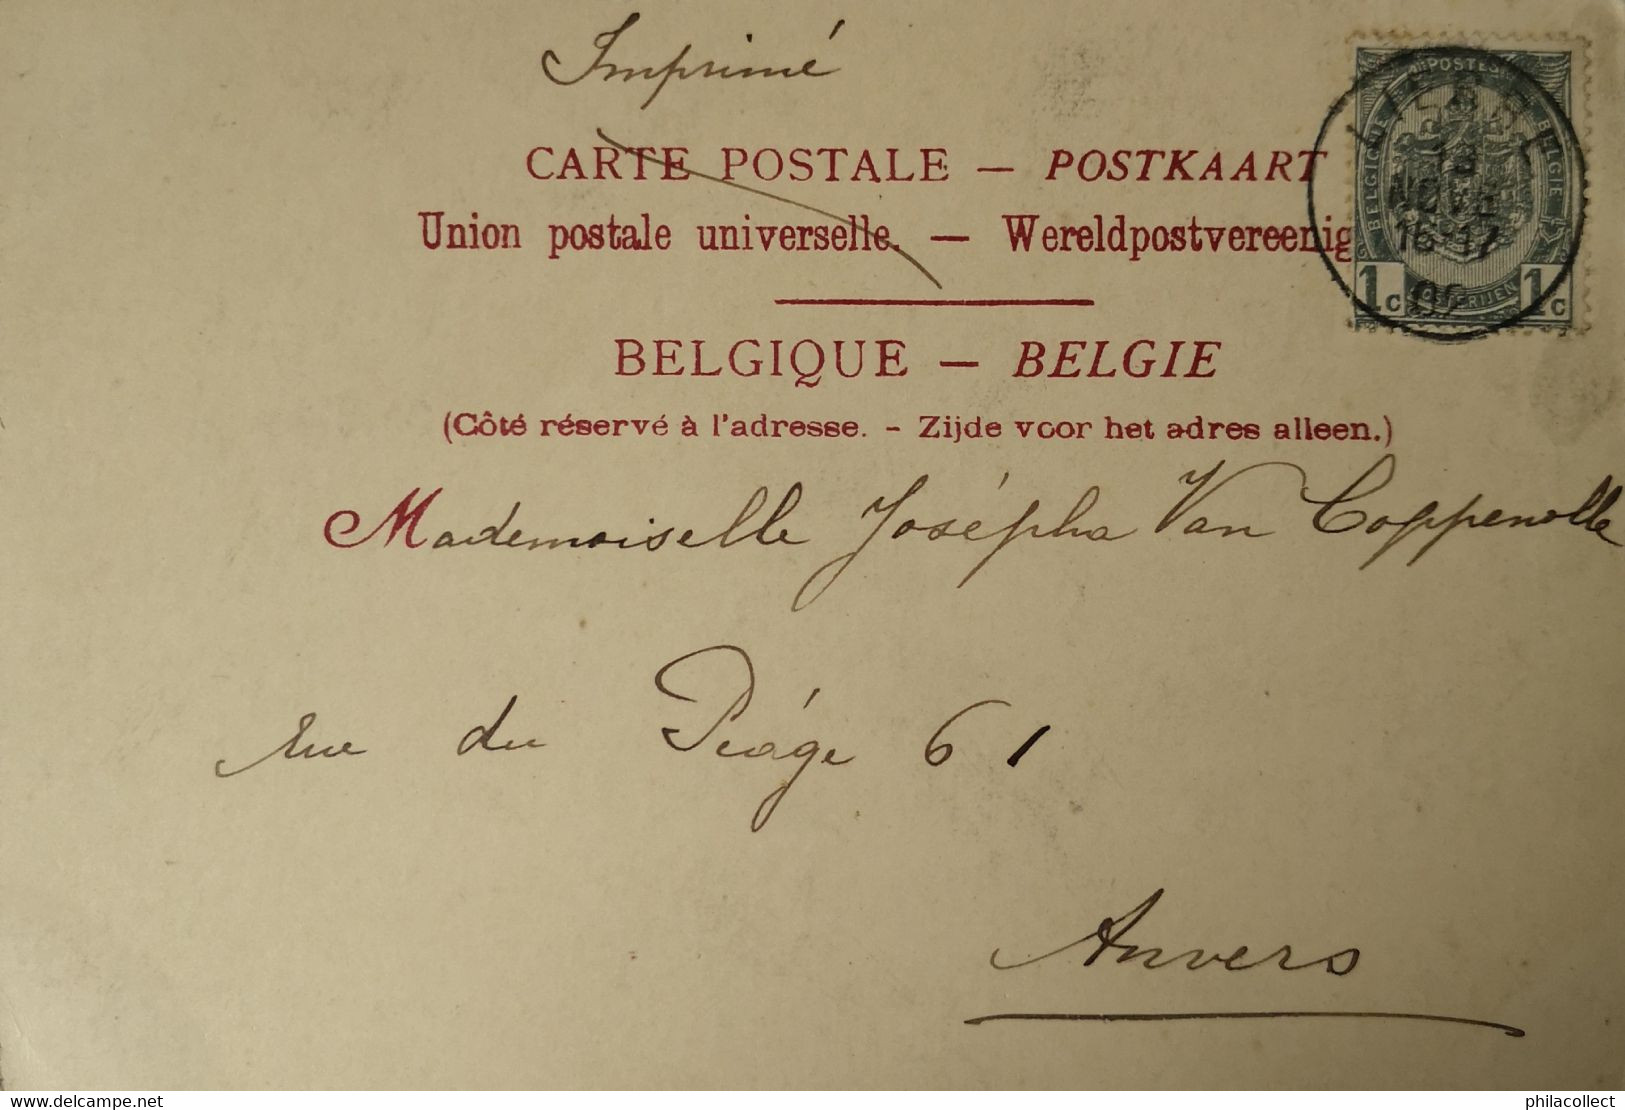 Imprimé
CARTE POSTALE — POSTKAART
Union postale universelle. — Wereldpostvereenig
BELGIQUE — BELGIE
(Côté réservé à l'adresse. - Zijde voor het adres alleen.)
Mademoiselle Josépha Van Coppenolle
rue du Péage 61
Anvers
POSTES
BELGIQUE
BELGIE
1c
1c
LIERRE
13
NOVE
16-17
philacollect
delcampe.net